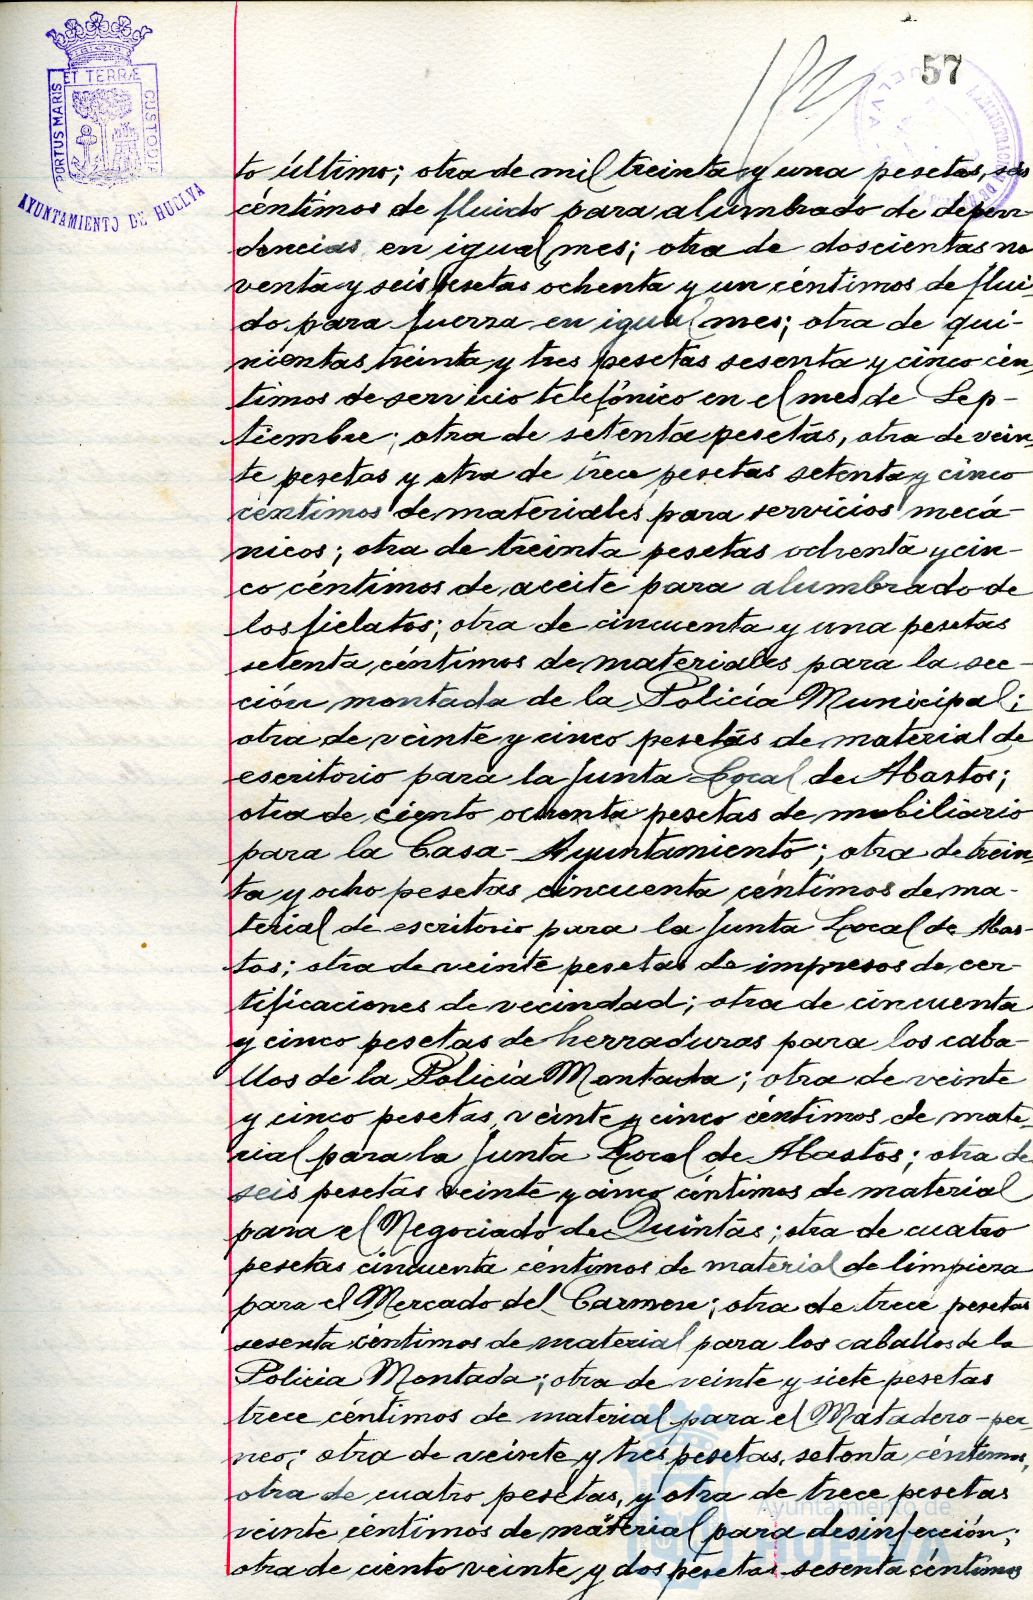 PORTUS MARIS ET TERRÆ CUSTODIA
AYUNTAMIENTO DE HUELVA
57
to último; otra de mil treinta y una pesetas, seis
céntimos de fluido para alumbrado de depen-
dencias en igual mes; otra de doscientas no
venta y seis pesetas ochenta y un céntimos de flui-
do para fuerza en igual mes; otra de qui-
nientas treinta y tres pesetas sesenta y cinco cén
timos de servicio telefónico en el mes de Sep-
tiembre; otra de setenta pesetas, otra de vein-
te pesetas y otra de trece pesetas setenta y cinco
céntimos de materiales para servicios mecá-
nicos; otra de treinta pesetas ochenta y cin-
co céntimos de aceite para alumbrado de
los fielatos; otra de cincuenta y una pesetas
setenta céntimos de materiales para la sec-
ción montada de la Policía Municipal;
otra de veinte y cinco pesetas de material de
escritorio para la Junta Local de Abastos;
otra de ciento ochenta pesetas de mobiliario
para la Casa-Ayuntamiento; otra de trein-
ta y ocho pesetas cincuenta céntimos de ma-
terial de escritorio para la Junta Local de Abas-
tos; otra de veinte pesetas de impresos de cer-
tificaciones de vecindad; otra de cincuenta
y cinco pesetas de herraduras para los caba-
llos de la Policía Montada; otra de veinte
y cinco pesetas, veinte y cinco céntimos de mate-
rial para la Junta Local de Abastos; otra de
seis pesetas veinte y cinco céntimos de material
para el Negociado de Quintas; otra de cuatro
pesetas cincuenta céntimos de material de limpieza
para el Mercado del Carmen; otra de trece pesetas
sesenta céntimos de material para los caballos de la
Policia Montada; otra de veinte y siete pesetas
trece céntimos de material para el Matadero-per-
neo; otra de veinte y tres pesetas, setenta céntimos,
otra de cuatro pesetas, y otra de trece pesetas
veinte céntimos de material para desinfección;
otra de ciento veinte y dos pesetas sesenta céntimos
Ayuntamiento de
HUELVA